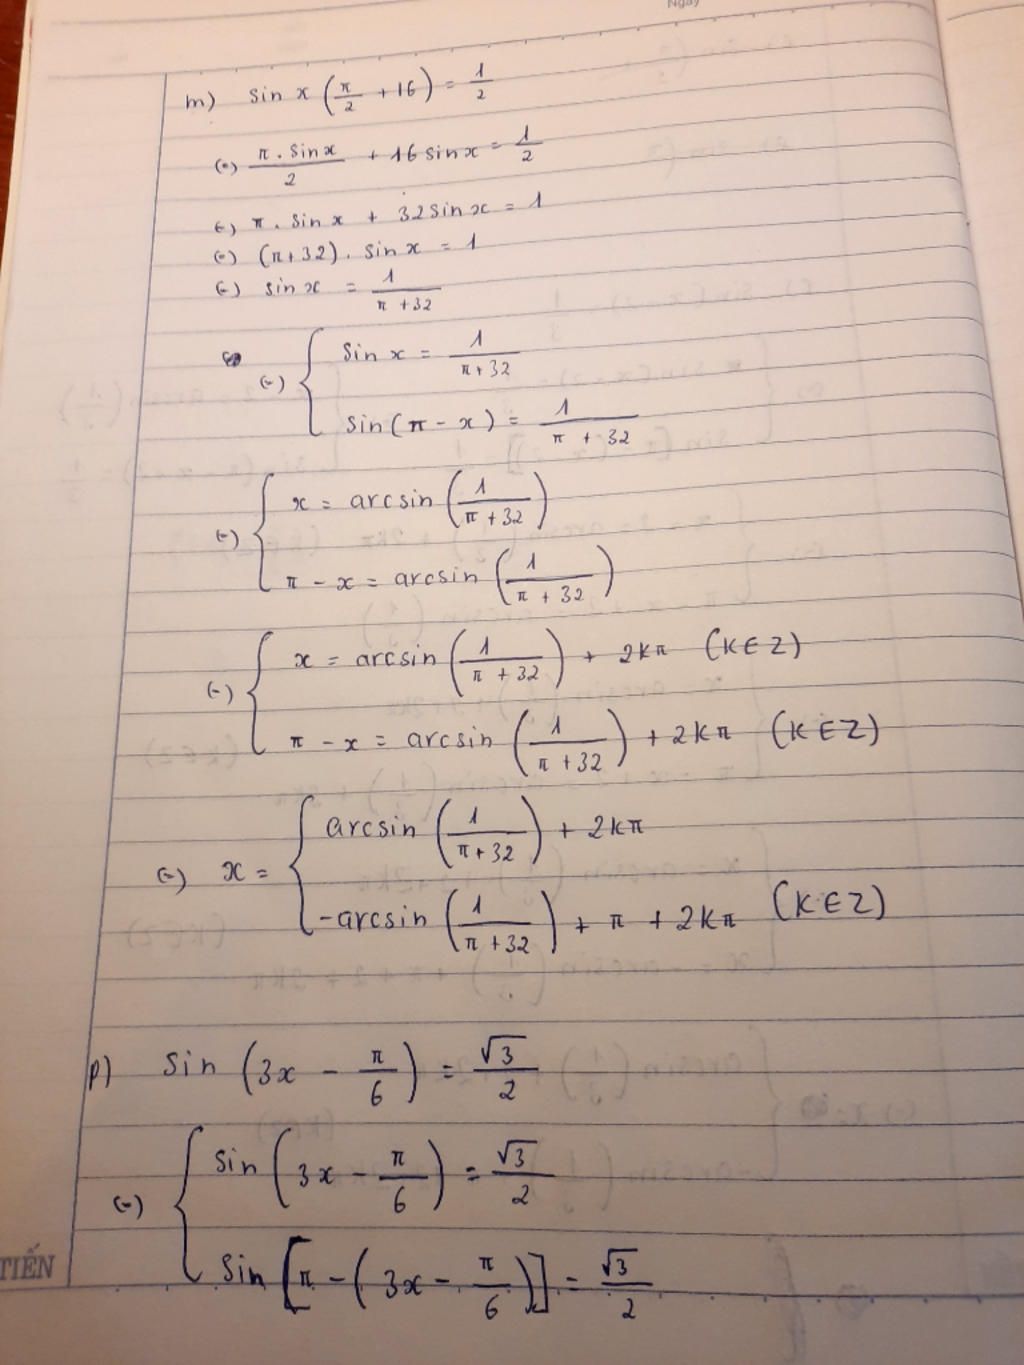 Ngày
m) sin x (π/2 + 16) = 1/2
(=) π . sin x / 2 + 16 sin x = 1/2
(=) π . sin x + 32 sin x = 1
(=) (π + 32) . sin x = 1
(=) sin x = 1/(π + 32)
(=) { sin x = 1/(π + 32)
sin (π - x) = 1/(π + 32)
(=) { x = arcsin (1/(π + 32))
π - x = arcsin (1/(π + 32))
(=) { x = arcsin (1/(π + 32)) + 2kπ (K ∈ Z)
π - x = arcsin (1/(π + 32)) + 2kπ (K ∈ Z)
(=) x = { arcsin (1/(π + 32)) + 2kπ
-arcsin (1/(π + 32)) + π + 2kπ (K ∈ Z)
p) sin (3x - π/6) = √3/2
(=) { sin (3x - π/6) = √3/2
sin [π - (3x - π/6)] = √3/2
TIẾN